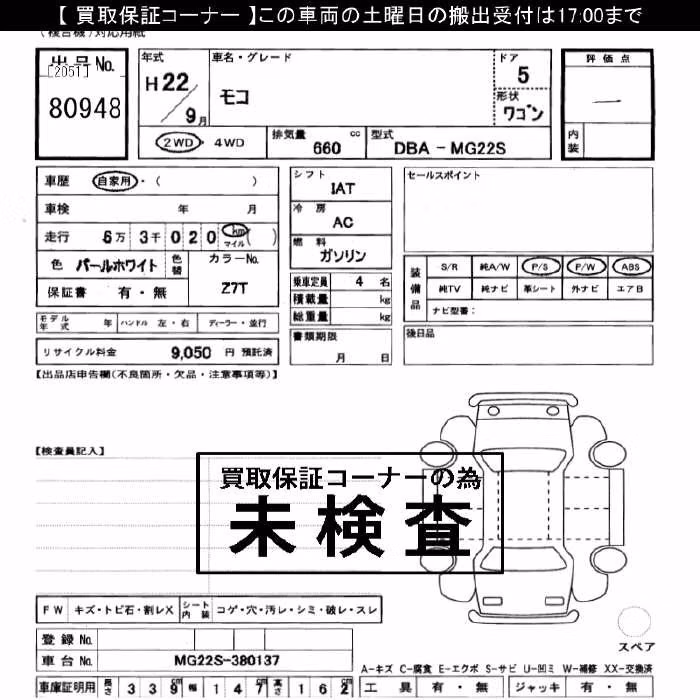 【 買取保証コーナー 】この車両の土曜日の搬出受付は17:00まで
(複合機)対応用紙
出品No.
[2051]
80948
年式
H22
9月
車名・グレード
モコ
ドア
5
形状
ワゴン
評価点
―
内装
2WD・4WD
排気量
660
cc
型式
DBA-MG22S
車歴 自家用・( )
車検 年 月
走行 6万 3千 0 2 0 km マイル ( )
色 パールホワイト
色替
カラーNo.
Z7T
保証書 有・無
モデル年式 年
ハンドル 左・右
ディーラー・並行
リサイクル料金 9,050 円 預託済
シフト
IAT
冷房
AC
燃料
ガソリン
乗車定員 4 名
積載量 kg
総重量 kg
書類期限
月 日
セールスポイント
装備品
S/R 純A/W P/S P/W ABS
純TV 純ナビ 革シート 外ナビ エアB
ナビ型番:
後日品
【出品店申告欄(不良箇所・欠品・注意事項等)】
【検査員記入】
買取保証コーナーの為
未検査
FW キズ・トビ石・割レX
シート内装 コゲ・穴・汚レ・シミ・破レ・スレ
登録No.
車台No. MG22S-380137
車庫証明用 長さ 3 3 9 cm 幅 1 4 7 cm 高さ 1 6 2 cm
スペア
A-キズ C-腐食 E-エクボ S-サビ U-凹ミ W-補修 XX-交換済
工具 有・無 ジャッキ 有・無